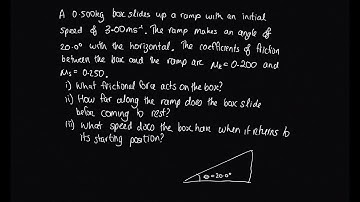 A 0.500kg box slides up a ramp with an initial
speed of 3.00ms⁻¹. The ramp makes an angle of
20.0° with the horizontal. The coefficients of friction
between the box and the ramp are μk = 0.200 and
μs = 0.250.
i) What frictional force acts on the box?
ii) How far along the ramp does the box slide
before coming to rest?
iii) What speed does the box have when it returns to
its starting position?
θ = 20.0°